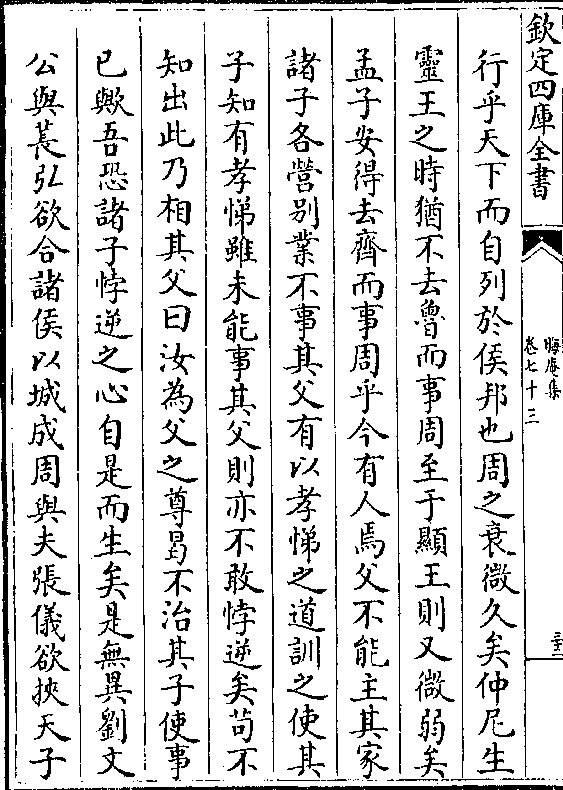 欽定四庫全書
晦庵集
卷七十三
行乎天下而自列於侯邦也周之衰微久矣仲尼生
靈王之時猶不去魯而事周至于顯王則又微弱矣
孟子安得去齊而事周乎今有人焉父不能主其家
諸子各營别業不事其父有以孝悌之道訓之使其
子知有孝悌雖未能事其父則亦不敢悖逆矣苟不
知出此乃相其父曰汝為父之尊曷不治其子使事
已歟吾恐諸子悖逆之心自是而生矣是無異劉文
公與萇弘欲合諸侯以城成周與夫張儀欲挾天子